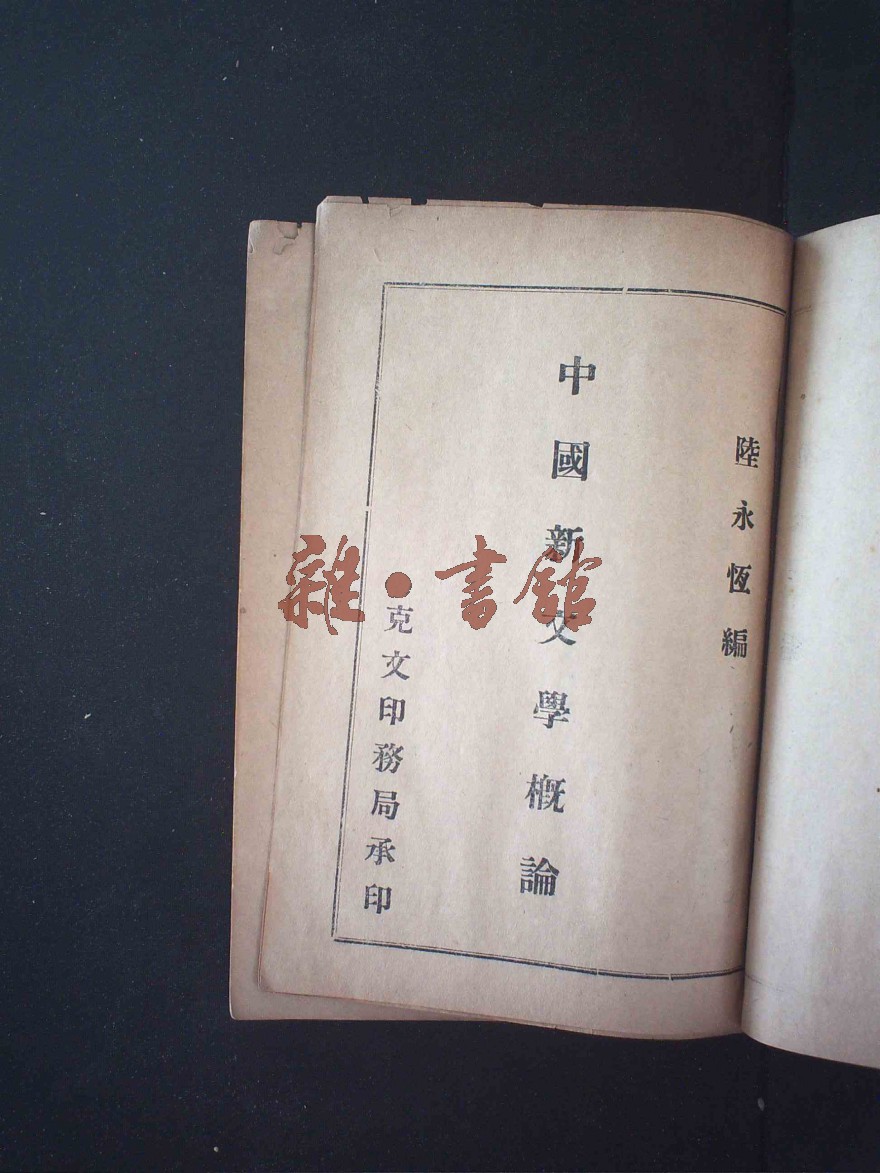 陸永恆編
中國新文學概論
克文印務局承印
雜·書舘